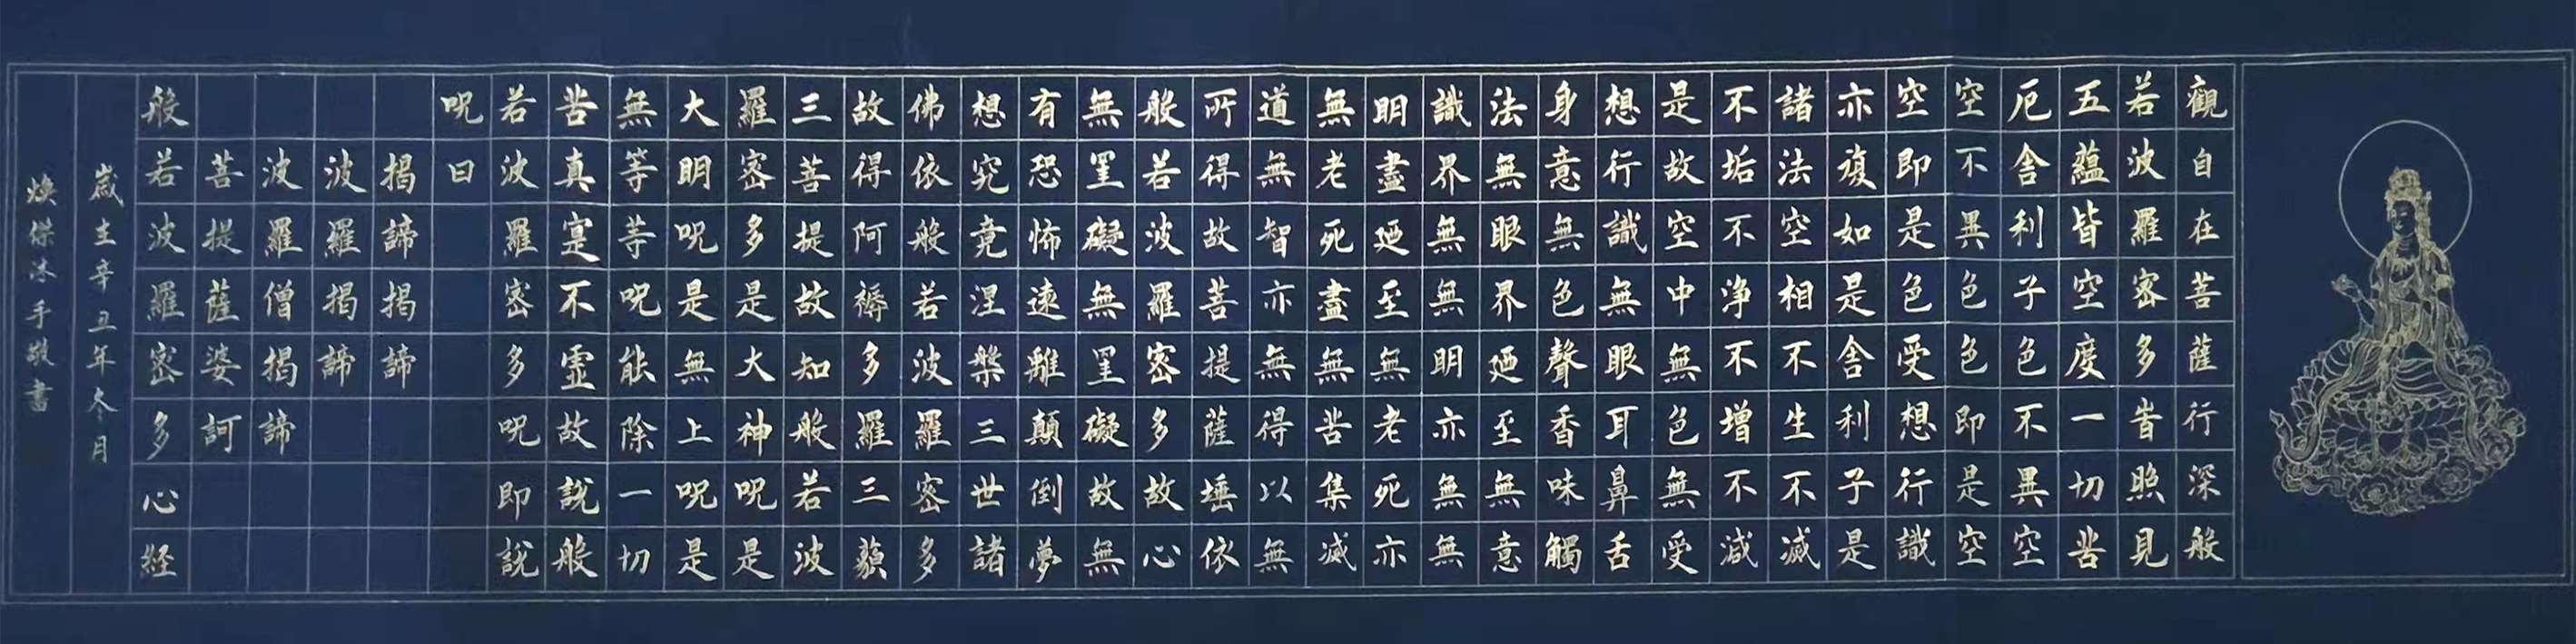 觀自在菩薩行深般
若波羅密多旹照見
五蘊皆空度一切苦
厄舍利子色不異空
空不異色色即是空
空即是色受想行識
亦復如是舍利子是
諸法空相不生不滅
不垢不净不增不減
是故空中無色無受
想行識無眼耳鼻舌
身意無色聲香味觸
法無眼界廼至無意
識界無無明亦無無
明盡廼至無老死亦
無老死盡無苦集滅
道無智亦無得以無
所得故菩提薩埵依
般若波羅密多故心
無罣礙無罣礙故無
有恐怖遠離顛倒夢
想究竟涅槃三世諸
佛依般若波羅密多
故得阿耨多羅三藐
三菩提故知般若波
羅密多是大神呪是
大明呪是無上呪是
無等等呪能除一切
苦真寔不虛故說般
若波羅密多呪即說
呪曰
揭諦揭諦
波羅揭諦
波羅僧揭諦
菩提薩婆訶
般若波羅密多心経
歲在辛丑年冬月
煥傑沐手敬書